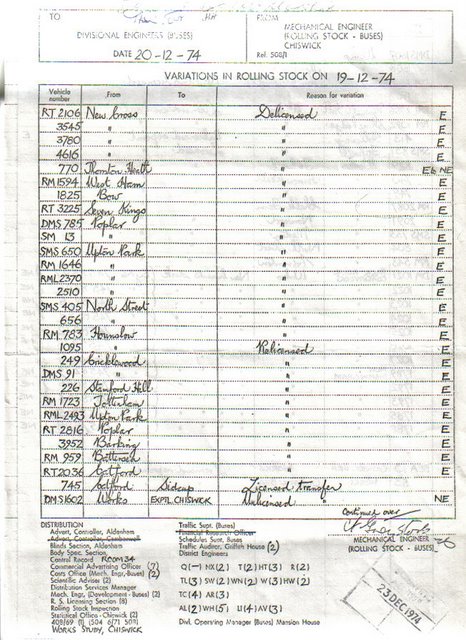 TO
FROM
DIVISIONAL ENGINEERS (BUSES)
MECHANICAL ENGINEER
(ROLLING STOCK - BUSES)
CHISWICK
DATE 20-12-74
Ref. 508/1
VARIATIONS IN ROLLING STOCK ON 19-12-74
Vehicle number From To Reason for variation
RT 2106 New Cross Delicensed E
3545 " " E
3780 " " E
4616 " " E
770 Thornton Heath " E & NE
RM 1594 West Ham " E
1825 Bow " E
RT 3225 Seven Kings " E
DMS 785 Poplar " E
SM 13 " " E
SMS 650 Upton Park " E
RM 1646 " " E
RML 2370 " " E
2510 " " E
SMS 405 North Street " E
656 " " E
RM 783 Hounslow " E
1095 " Relicensed E
249 Cricklewood " E
DMS 91 " " E
226 Stamford Hill " E
RM 1723 Tottenham " E
RML 2493 Upton Park " E
RT 2816 Poplar " E
3952 Barking " E
RM 959 Battersea " E
RT 2036 Catford " E
745 Catford Sidcup Licensed transfer E
DMS 1602 Works EXPTL. CHISWICK Unlicensed " NE
continued over
MECHANICAL ENGINEER
(ROLLING STOCK - BUSES)
23 DEC 1974
DISTRIBUTION
Advert. Controller, Aldenham
Advert. Controller, Camberwell
Blinds Section, Aldenham
Body Spec. Section,
Central Record ROOM 34
Commercial Advertising Officer (7)
Costs Office (Mech. Engr. Buses) (2)
Scientific Adviser (2)
Distribution Services Manager
Mech. Engr. (Development - Buses) (2)
R. S. Licensing Section (8)
Rolling Stock Inspection
Statistical Office - Chiswick (2)
408/69 (1) (504 6/71 508)
WORKS STUDY, CHISWICK
Traffic Supt. (Buses)
Financial Research Officer
Schedules Supt. Buses
Traffic Auditor, Griffith House (2)
District Engineers
NX (2) T (2) HT (3) R (2)
TL (3) SW (2) WN (2) W (3) HW (2)
TC (4) AR (3)
AL (2) WH (5) U (4) AV (3)
Divl. Operating Manager (Buses) Mansion House